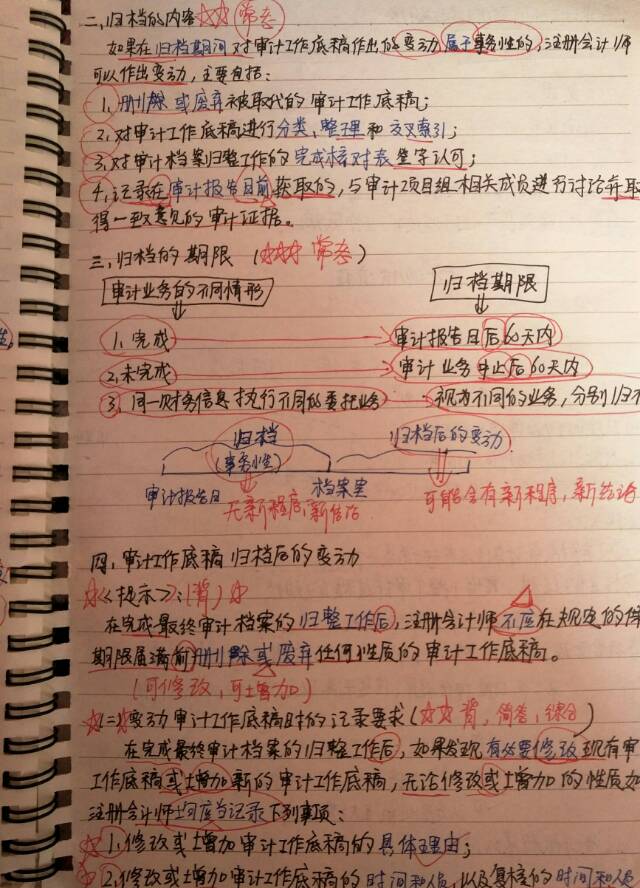 二、归档的内容 ☆☆ 常态
如果在归档期间对审计工作底稿作出的变动属于事务性的,注册会计师
可以作出变动,主要包括:
1、删除或废弃被取代的审计工作底稿;
2、对审计工作底稿进行分类、整理和交叉索引;
3、对审计档案归整工作的完成核对表签字认可;
4、记录在审计报告日前获取的,与审计项目组相关成员进行讨论并取
得一致意见的审计证据。
三、归档的期限(☆☆☆ 常态)
审计业务的不同情形 归档期限
1、完成 审计报告日后60天内
2、未完成 审计业务中止后60天内
3、同一财务信息执行不同的委托业务 视为不同的业务,分别归
归档 归档后的变动
(事务性)
审计报告日 档案室
无新程序,新结论 可能会有新程序,新结论
四、审计工作底稿归档后的变动
☆<提示>:(背)☆
在完成最终审计档案的归整工作后,注册会计师不应在规定的保
期限届满前删除或废弃任何性质的审计工作底稿。
(可修改,可增加)
☆(二)变动审计工作底稿时的记录要求(☆☆ 背,简答,综合)
在完成最终审计档案的归整工作后,如果发现有必要修改现有审
工作底稿或增加新的审计工作底稿,无论修改或增加的性质如
注册会计师均应当记录下列事项:
☆1、修改或增加审计工作底稿的具体理由;
2、修改或增加审计工作底稿的时间和人员,以及复核的时间和人员